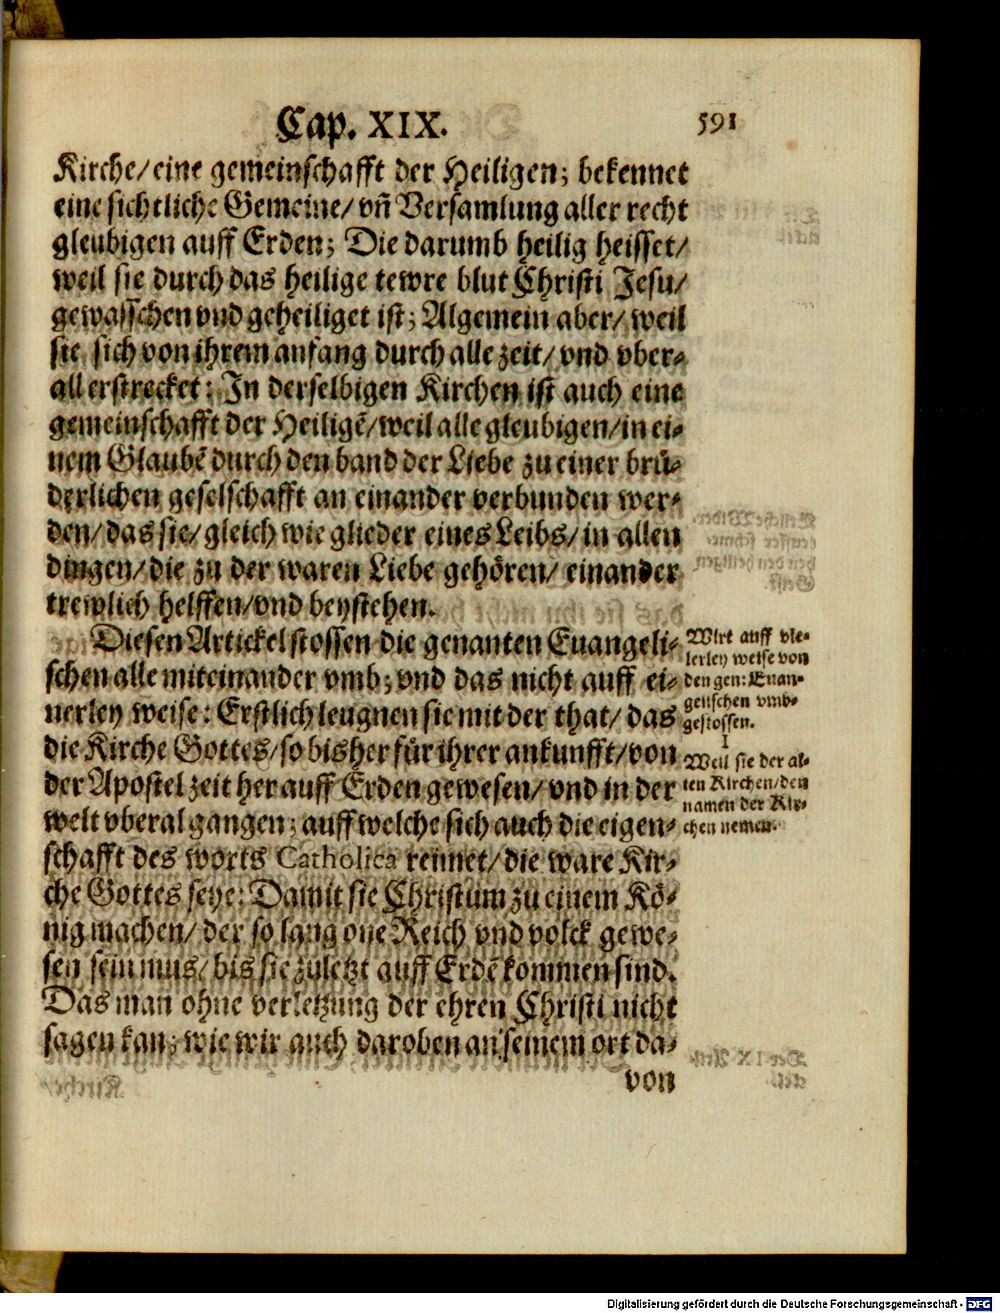 Cap. XIX.
591
Kirche/eine gemeinschafft der Heiligen; bekennet
eine sichtliche Gemeine/ vñ Versamlung aller recht
gleubigen auff Erden; Die darumb heilig heisset/
weil sie durch das heilige tewre blut Christi Jesu/
gewasschen vnd geheiliget ist; Algemein aber/ weil
sie sich von ihrem anfang durch alle zeit/ vnd vber-
all erstrecket: In derselbigen Kirchen ist auch eine
gemeinschafft der Heiligẽ/weil alle gleubigen/in ei-
nem Glaubẽ durch den band der Liebe zu einer brü-
derlichen geselschafft an einander verbunden wer-
den/das sie/gleich wie glieder eines Leibs/in allen
dingen/die zu der waren Liebe gehören/ einander
trewlich helffen/vnd beystehen.
Diesen Artickel stossen die genanten Euangeli-
schen alle miteinander vmb; vnd das nicht auff ei-
nerley weise: Erstlich leugnen sie mit der that/ das
die Kirche Gottes/so bisher für ihrer ankunfft/von
der Apostel zeit her auff Erden gewesen/ vnd in der
welt vberal gangen; auff welche sich auch die eigen-
schafft des worts Catholica reimet/die ware Kir-
che Gottes seye: Damit sie Christum zu einem Kö-
nig machen/ der so lang one Reich vnd volck gewe-
sen sein mus/ bis sie zuletzt auff Erdẽ kommen sind.
Das man ohne verletzung der ehren Christi nicht
sagen kan; wie wir auch daroben an seinem ort da-
von
Wirt auff vie-
lerley weise von
den gen: Euan-
gelischen vmb-
gestossen.
1
Weil sie der al-
ten Kirchen/den
namen der Kir-
chen nemen.
Digitalisierung gefördert durch die Deutsche Forschungsgemeinschaft - DFG